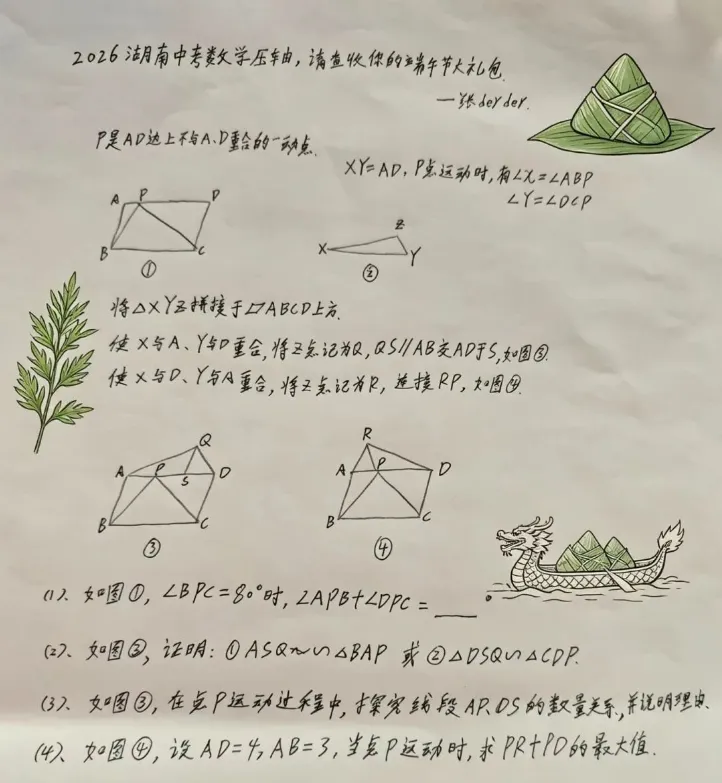 2026湖南中考数学压轴,请查收你的端午节大礼包.
—张der der.
P是AD边上不与A、D重合的一动点.
XY=AD,P点运动时,有∠X=∠ABP
∠Y=∠DCP
A P D
B C
①
Z
X Y
②
将△XYZ拼接于▱ABCD上方.
使X与A、Y与D重合,将Z点记为Q,QS∥AB交AD于S,如图③.
使X与D、Y与A重合,将Z点记为R,连接RP,如图④.
Q
A P S D
B C
③
R
A P D
B C
④
(1)、如图①,∠BPC=80°时,∠APB+∠DPC=____。
(2)、如图③,证明:①ASQ∽△BAP 或②△DSQ∽△CDP.
(3)、如图③,在点P运动过程中,探究线段AP、DS的数量关系,并说明理由.
(4)、如图④,设AD=4,AB=3,当点P运动时,求PR+PD的最大值.